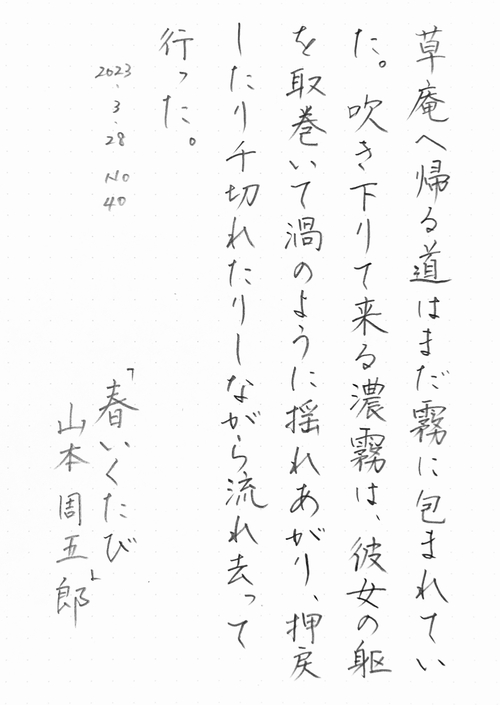 草庵へ帰る道はまだ霧に包まれてい
た。吹き下りて来る濃霧は、彼女の躯
を取巻いて渦のように揺れあがり、押戻
したり千切れたりしながら流れ去って
行った。
2023.3.28 No 40
「春いくたび」
山本周五郎